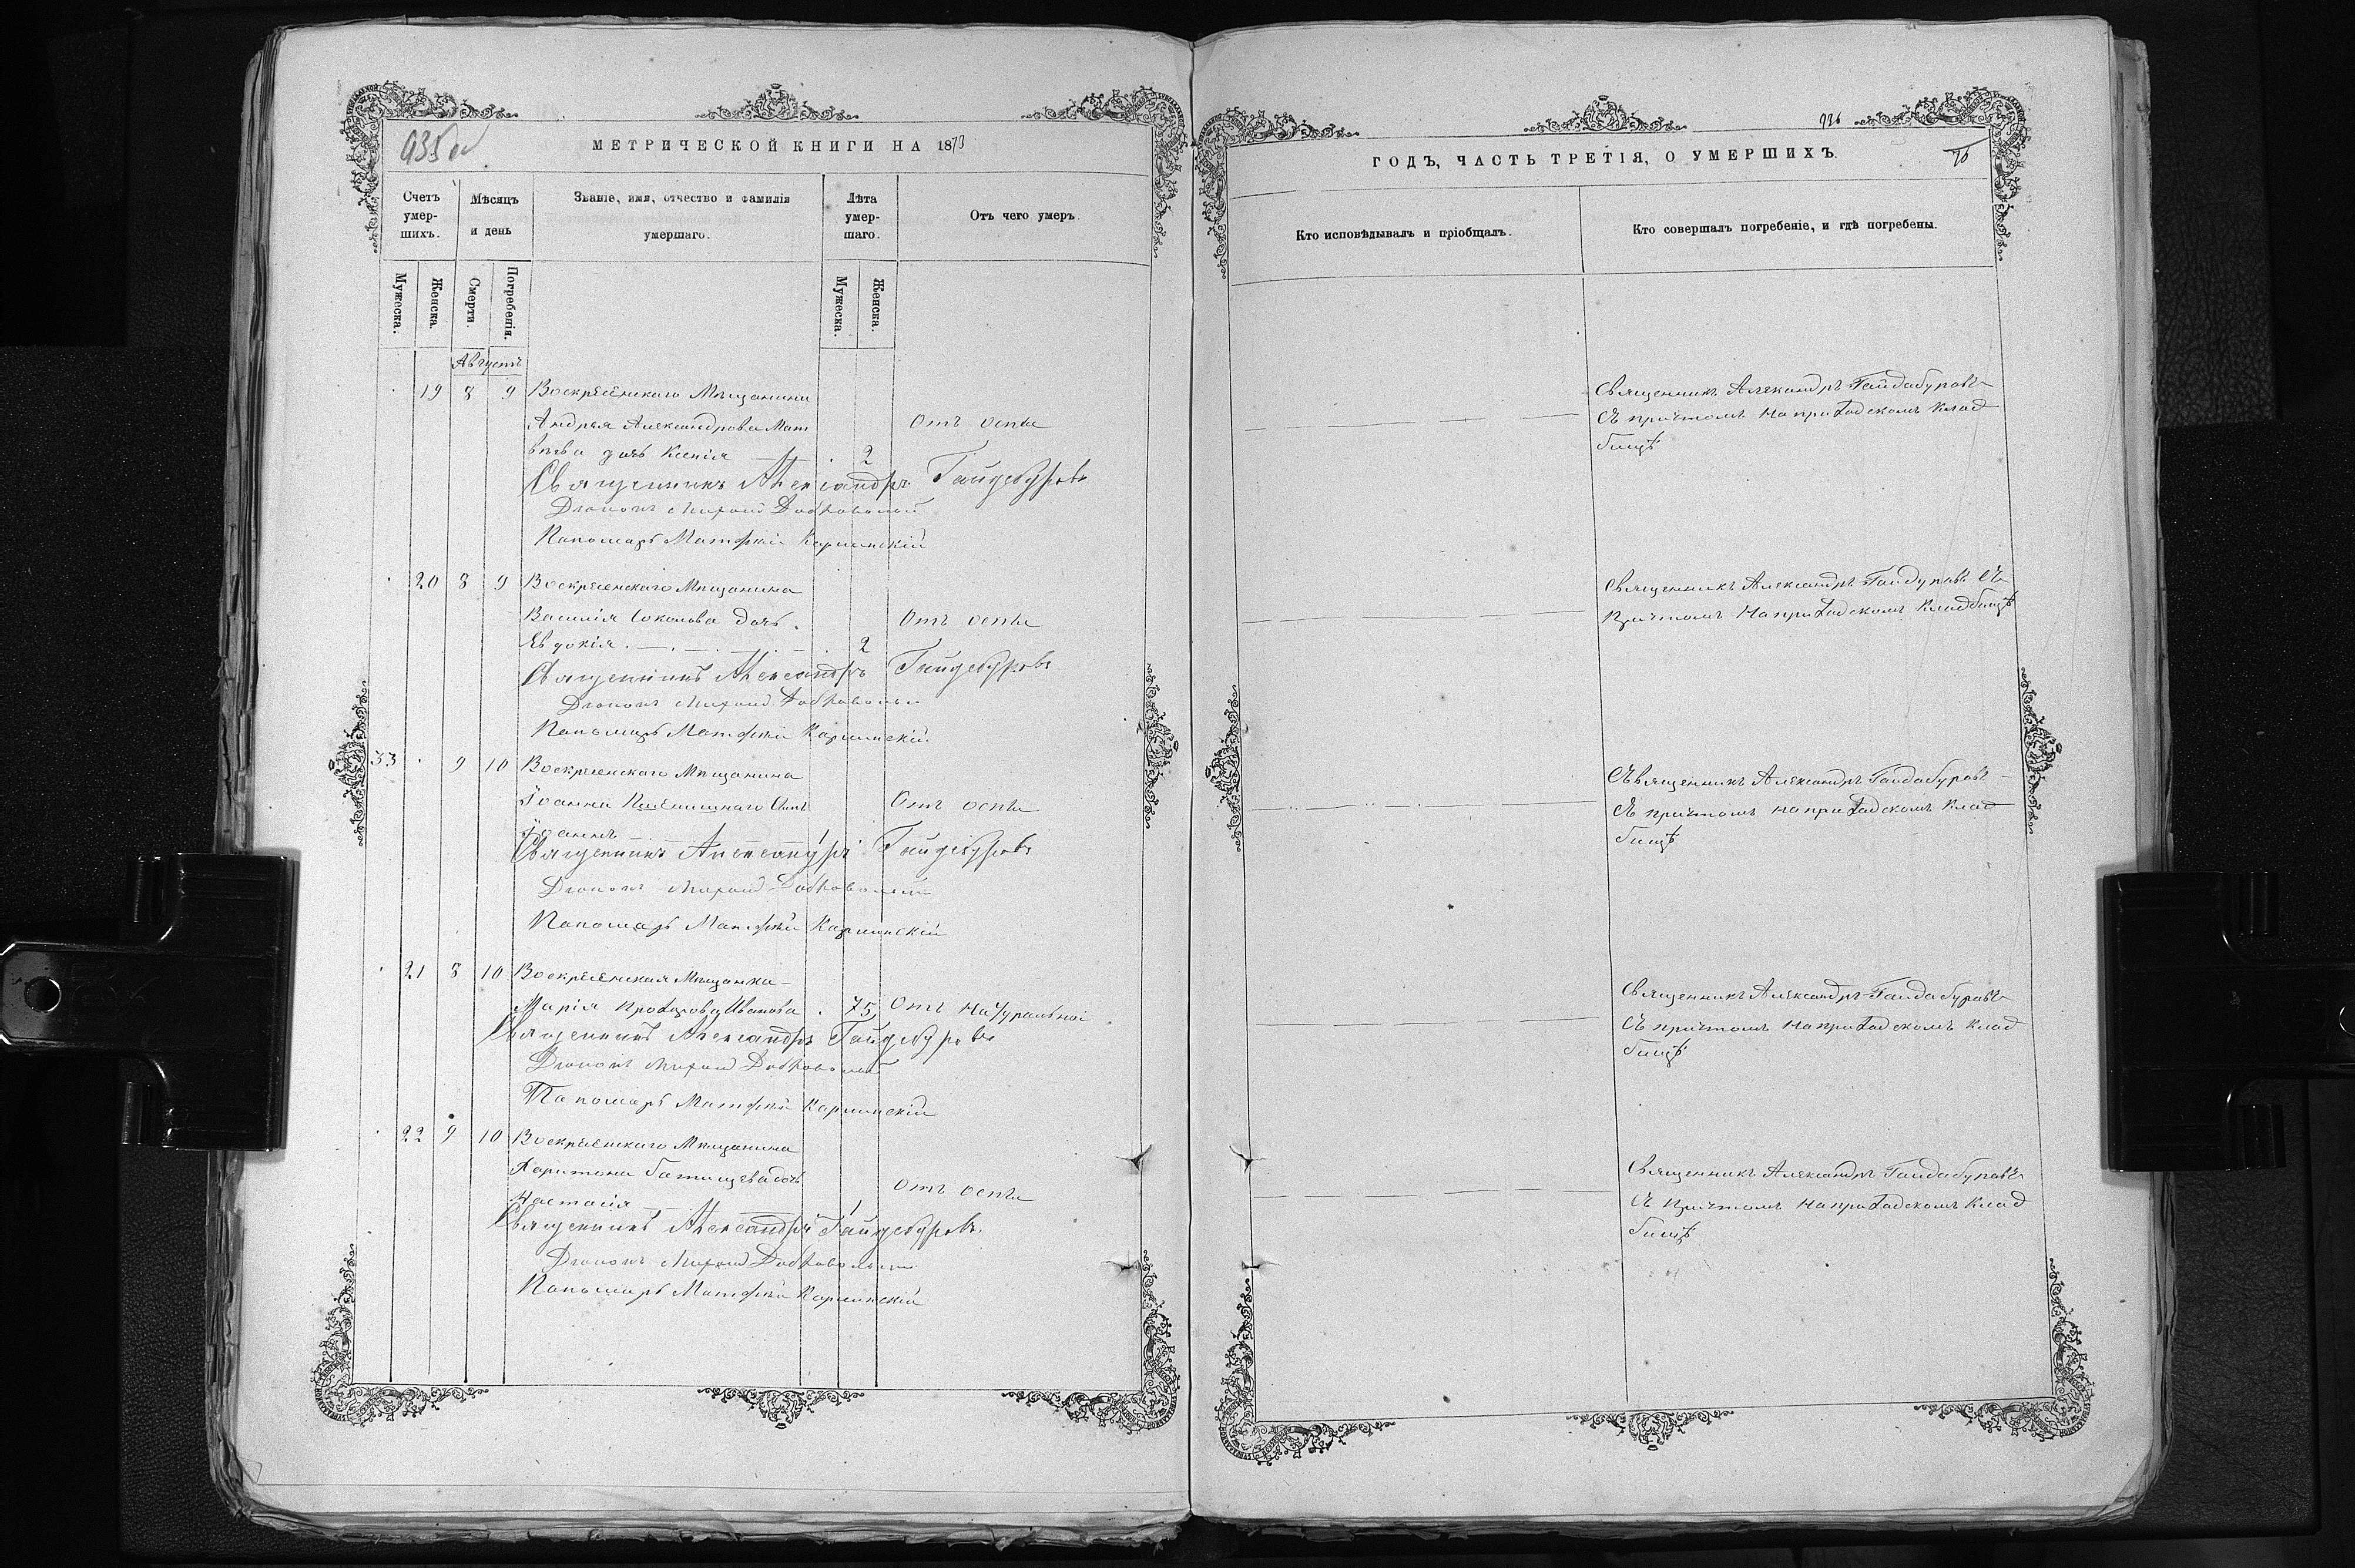 МЕТРИЧЕСКОЙ КНИГИ НА 1873
Счетъ умер-шихъ.
Мѣсяцъ и день
Званіе, имя, отчество и фамилія умершаго.
Лѣта умер-шаго.
Отъ чего умеръ
Мужеска.
Женска.
Смерти.
Погребенія.
Мужеска.
Женска.
Августъ
19 8 9 Воскресенскаго Мѣщанина
Андрея Александрова Мат
вѣева дочь Ксенія 2 Отъ оспы
Священникъ Александръ Гайдебуровъ
Діаконъ
Пономарь Матфѣй Карпинскій
20 8 9 Воскресенскаго Мѣщанина
Василія Соколова дочь
Евдокія 2 Отъ оспы
Священникъ Александръ Гайдебуровъ
Діаконъ
Пономарь Матфѣй Карпинскій
33 9 10 Воскресенскаго Мѣщанина
Іоанна Пшенишнаго Сынъ
Іоаннъ 1 Отъ оспы
Священникъ Александръ Гайдебуровъ
Діаконъ
Пономарь Матфѣй Карпинскій
21 8 10 Воскресенская Мѣщанка
Марія Прохорова Иванова 75 Отъ натуральной
Священникъ Александръ Гайдебуровъ
Діаконъ
Пономарь Матфѣй Карпинскій
22 9 10 Воскресенскаго Мѣщанина
Харитона Батищева дочь
Настасія 1 Отъ оспы
Священникъ Александръ Гайдебуровъ
Діаконъ
Пономарь Матфѣй Карпинскій
ГОДЪ, ЧАСТЬ ТРЕТІЯ, О УМЕРШИХЪ.
Кто исповѣдывалъ и пріобщалъ.
Кто совершалъ погребеніе, и гдѣ погребены.
Священникъ Александръ Гайдабуровъ
Съ причтомъ на приходскомъ клад
бищѣ
Священникъ Александръ Съ
Причтомъ На приходскомъ Кладбищѣ
Священникъ Александръ Гайдабуровъ
Съ причтомъ на приходскомъ клад
бищѣ
Священникъ Александръ Гайдабуровъ
Съ причтомъ на приходскомъ клад
бищѣ
Священникъ Александръ Гайдабуровъ
Съ Причтомъ на приходскомъ клад
бищѣ